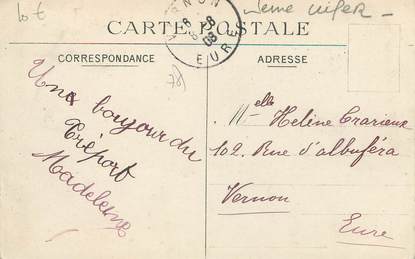 10 €
CARTE POSTALE
VERNON
8 -8
08
EURE
CORRESPONDANCE
ADRESSE
Un bonjour du
Tréport
Madeleine
Melle Helène Crarieux
102. Rue d'albuféra
Vernon
Eure